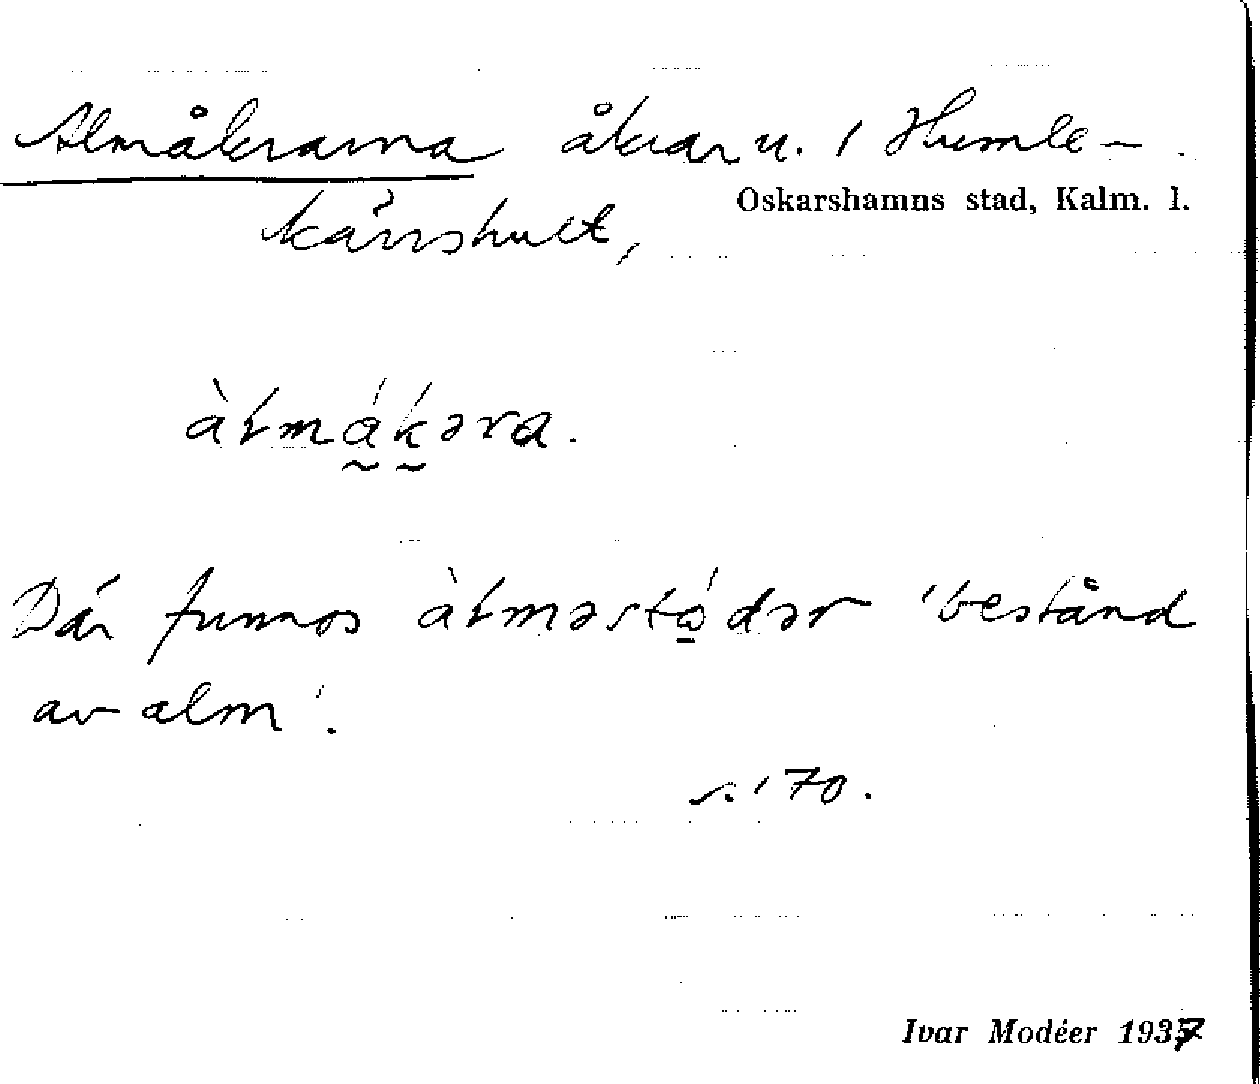 Almåkrarna åkrar u. / Humle-
kärrshult,
Oskarshamns stad, Kalm. l.
àłmá̰ḱ̰əra.
Där funnos àłməstó̱dər 'bestånd
av alm'.
s. 170.
Ivar Modéer 1937